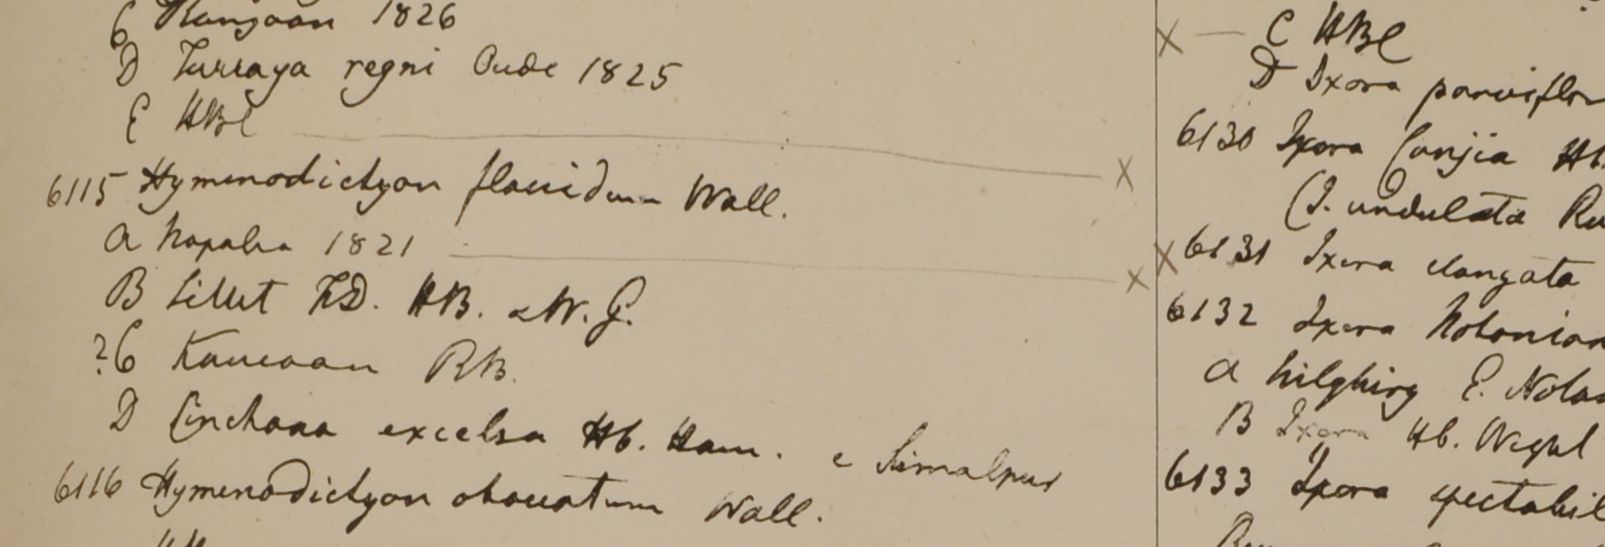 C Rangoon 1826
D Turraya regni Oude 1825
E HBC
6115 Hymenodictyon flaccidum Wall.
a Napalia 1821
B Sillet FD. HB. & W. G.
?C Kamaon RB.
D Cinchona excelsa Hb. Ham. e Simalpur
6116 Hymenodictyon obovatum Wall.
C HBC
D Ixora parviflor
6130 Ixora Cunjia Hb.
(I. undulata Ro
6131 Ixora elongata
6132 Ixora Notonian
a Nilghiry E. Noton
B Ixora Hb. Wight
6133 Ixora spectabil